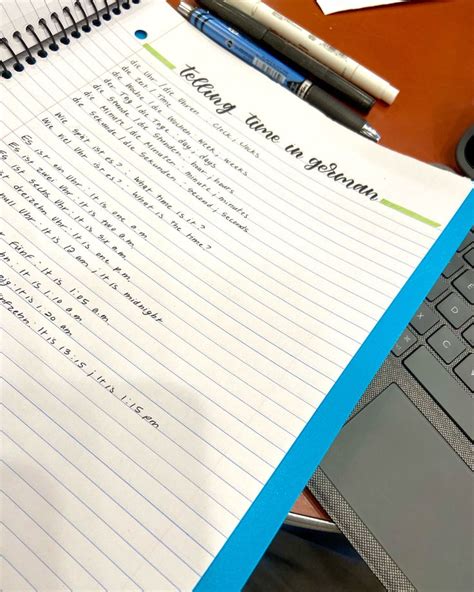 telling time in german
die Uhr / die Uhren - clock / clocks
die Zeit / Time
die Woche / die Wochen - week / weeks
der Tag / die Tage - day / days
die Stunde / die Stunden - hour / hours
die Minute / die Minuten - minute / minutes
die Sekunde / die Sekunden - second / seconds
Wie spät ist es? - What time is it?
Wie viel Uhr ist es? - What is the time?
Es ist ein Uhr : It is one a.m
ist zwei Uhr : It is two a.m
ist sechs Uhr : It is six a.m
dreizehn Uhr : It is one p.m
null Uhr : It is 12 am / It is midnight
fünf : It is 1:05 a.m
It is 1:10 a.m
It is 1:20 am
fünfzehn : It is 13:15 / It is 1:15 pm